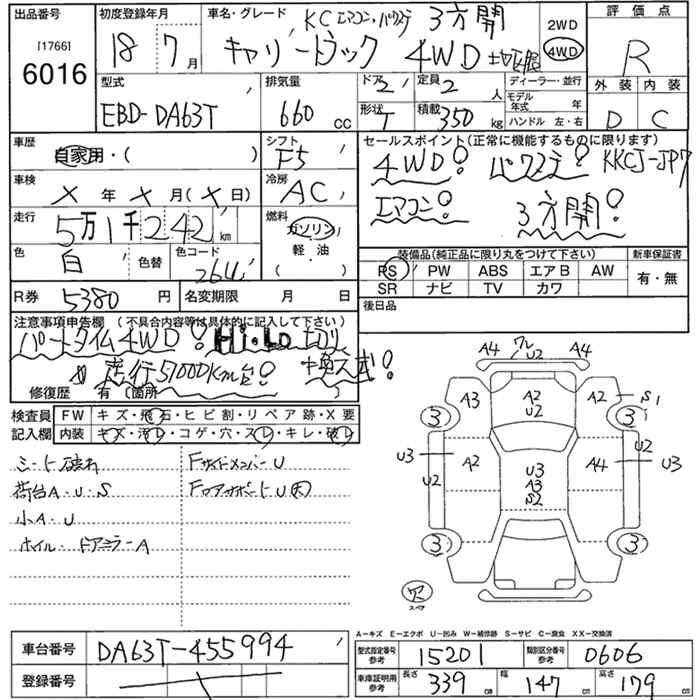 出品番号
[1766]
6016
初度登録年月
18 7月
車名・グレード KC エアコン・パワステ 三方開
キャリートラック 4WD
2WD
4WD
評価点
R
外装 内装
D C
型式
EBD-DA63T
排気量
660 cc
ドア 2 定員 2 人
形状 T 積載 350 kg
ディーラー・並行
モデル年式 年
ハンドル 左・右
車歴
自家用・( )
シフト
F5
車検
X 年 X 月(X 日)
冷房
AC
走行
5万1千242 km
燃料
ガソリン
軽・油
( )
色
白 色替
色コード
26U
R券 5380 円
名変期限 月 日
セールスポイント(正常に機能するものに限ります)
4WD! パワステ! KKCJ-JP7
エアコン! 三方開!
装備品(純正品に限り丸をつけて下さい)
PS PW ABS エアB AW
SR ナビ TV カワ
新車保証書
有・無
後日品
注意事項申告欄 (不具合内容等は具体的に記入して下さい)
パートタイム4WD! Hi・Lo 切り
走行51000Km台! 換え式!
修復歴 有 (箇所
検査員
記入欄
FW キズ・飛石・ヒビ割・リペア跡・X要
内装 キズ・汚レ・コゲ・穴・スレ・キレ・破レ
シート破れ
荷台A・U・S
小A・U
ホイル・ドアミラーA
FサイドメンバーU
FロアサポートU
A4 ワレ U2 A4
A3 A2 U2 A2 S1
3 3
U3 U2 A2 U3 A3 S2 A4 U2 U3
3 3
穴
スペア
A−キズ E−エクボ U−凹み W−補修跡 S−サビ C−腐食 XX−交換済
車台番号 DA63T-455994
登録番号
型式指定番号 参考 15201
類別区分番号 参考 0606
車庫証明用 参考 長さ 339 cm 幅 147 cm 高さ 179 cm